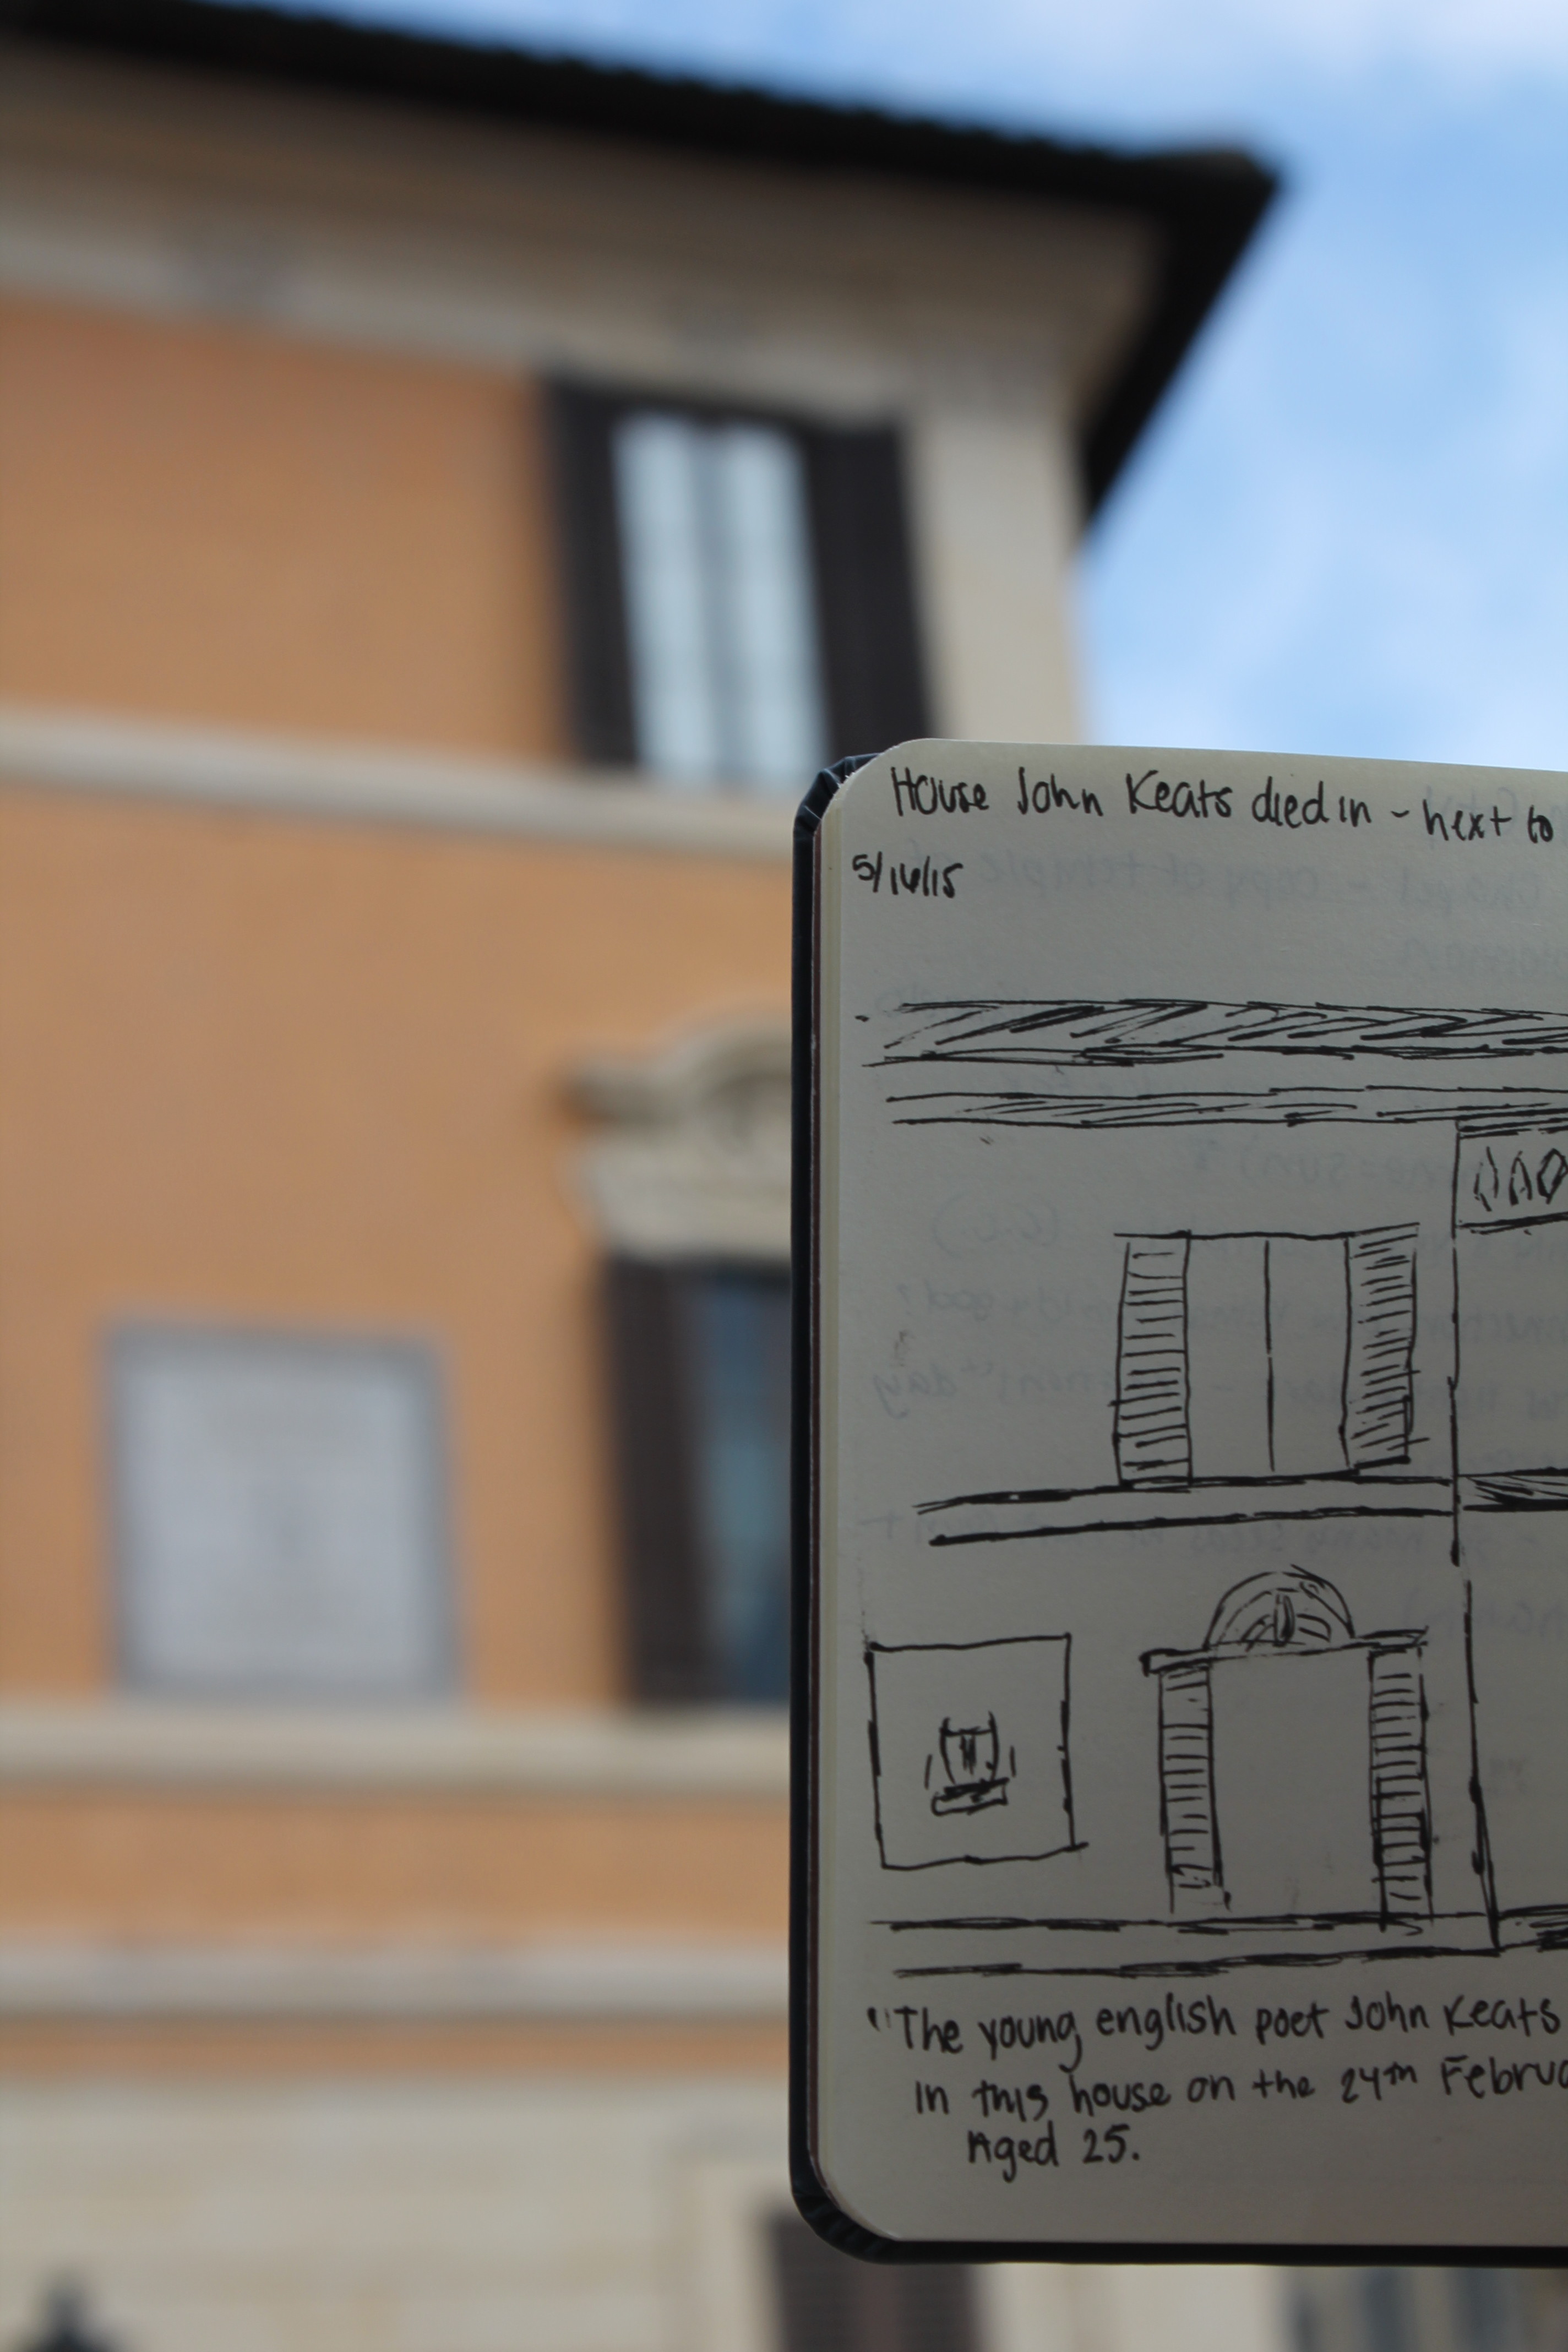 House John Keats died in - next to
5/16/15
"The young english poet John Keats
in this house on the 24th Februa
Aged 25.